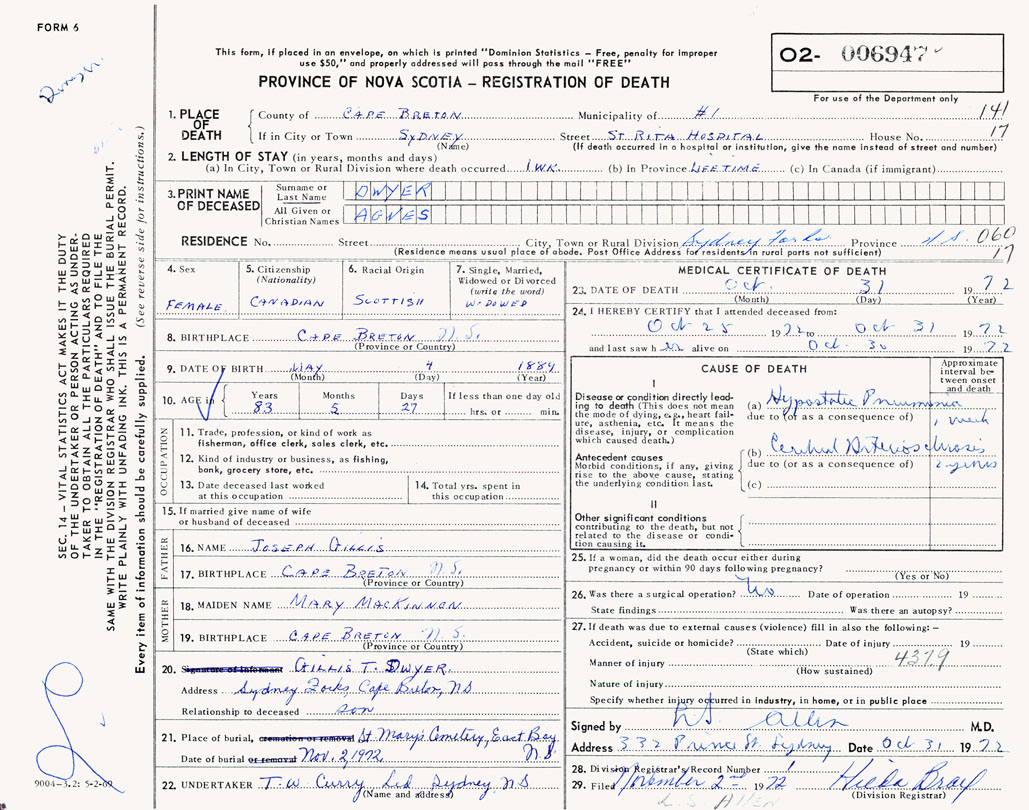 FORM 6
This form, if placed in an envelope, on which is printed "Dominion Statistics – Free, penalty for improper
use $50," and properly addressed will pass through the mail "FREE"
PROVINCE OF NOVA SCOTIA – REGISTRATION OF DEATH
O2- 006947
For use of the Department only
SEC. 14 – VITAL STATISTICS ACT MAKES IT THE DUTY
OF THE UNDERTAKER OR PERSON ACTING AS UNDER-
TAKER TO OBTAIN ALL THE PARTICULARS REQUIRED
IN THE "REGISTRATION OF DEATH" AND TO FILE THE
SAME WITH THE DIVISION REGISTRAR WHO SHALL ISSUE THE BURIAL PERMIT.
WRITE PLAINLY WITH UNFADING INK. THIS IS A PERMANENT RECORD.
Every item of information should be carefully supplied. (See reverse side for instructions.)
1. PLACE OF DEATH
County of CAPE BRETON Municipality of #1 141
If in City or Town SYDNEY Street ST. RITA HOSPITAL House No. 17
(Name) (If death occurred in a hospital or institution, give the name instead of street and number)
2. LENGTH OF STAY (in years, months and days)
(a) In City, Town or Rural Division where death occurred 1 WK. (b) In Province LIFETIME (c) In Canada (if immigrant)
3. PRINT NAME OF DECEASED
Surname or Last Name DWYER
All Given or Christian Names AGNES
RESIDENCE No. Street City, Town or Rural Division Sydney Forks Province N.S. 060
(Residence means usual place of abode. Post Office Address for residents in rural parts not sufficient) 17
4. Sex
FEMALE
5. Citizenship
(Nationality)
CANADIAN
6. Racial Origin
SCOTTISH
7. Single, Married,
Widowed or Divorced
(write the word)
WIDOWED
8. BIRTHPLACE CAPE BRETON N.S.
(Province or Country)
9. DATE OF BIRTH MAY 4 1889
(Month) (Day) (Year)
10. AGE in Years 83 Months 5 Days 27 If less than one day old
hrs. or min.
OCCUPATION
11. Trade, profession, or kind of work as
fisherman, office clerk, sales clerk, etc.
12. Kind of industry or business, as fishing,
bank, grocery store, etc.
13. Date deceased last worked
at this occupation
14. Total yrs. spent in
this occupation
15. If married give name of wife
or husband of deceased
FATHER
16. NAME JOSEPH GILLIS
17. BIRTHPLACE CAPE BRETON N.S.
(Province or Country)
MOTHER
18. MAIDEN NAME MARY MACKINNON
19. BIRTHPLACE CAPE BRETON N.S.
(Province or Country)
20. Signature of Informant GILLIS T. DWYER.
Address Sydney Forks, Cape Breton, N.S
Relationship to deceased son
21. Place of burial, cremation or removal St Mary's Cemetery, East Bay
Date of burial or removal Nov. 2, 1972 N.S
22. UNDERTAKER T. W. Curry Ltd Sydney N.S
(Name and address)
9004-3.2: 5-2-69
MEDICAL CERTIFICATE OF DEATH
23. DATE OF DEATH Oct. 31 1972
(Month) (Day) (Year)
24. I HEREBY CERTIFY that I attended deceased from:
Oct 25 1972 to Oct 31 1972
and last saw her alive on Oct. 30 1972
CAUSE OF DEATH
Approximate
interval be-
tween onset
and death
I
Disease or condition directly lead-
ing to death (This does not mean
the mode of dying, e.g., heart fail-
ure, asthenia, etc. It means the
disease, injury, or complication
which caused death.)
(a) Hypostatic Pneumonia
due to (or as a consequence of) 1 week
Antecedent causes
Morbid conditions, if any, giving
rise to the above cause, stating
the underlying condition last.
(b) Cerebral Arteriosclerosis
due to (or as a consequence of) 2 years
(c)
II
Other significant conditions
contributing to the death, but not
related to the disease or condi-
tion causing it.
25. If a woman, did the death occur either during
pregnancy or within 90 days following pregnancy?
(Yes or No)
26. Was there a surgical operation? No Date of operation 19
State findings Was there an autopsy?
27. If death was due to external causes (violence) fill in also the following: –
Accident, suicide or homicide? Date of injury 19
(State which)
Manner of injury 4379
(How sustained)
Nature of injury
Specify whether injury occurred in industry, in home, or in public place
Signed by H.S. Allen M.D.
Address 332 Prince St. Sydney Date Oct 31 1972
28. Division Registrar's Record Number 1
29. Filed November 2nd 1972 Hilda Bray
(Division Registrar)